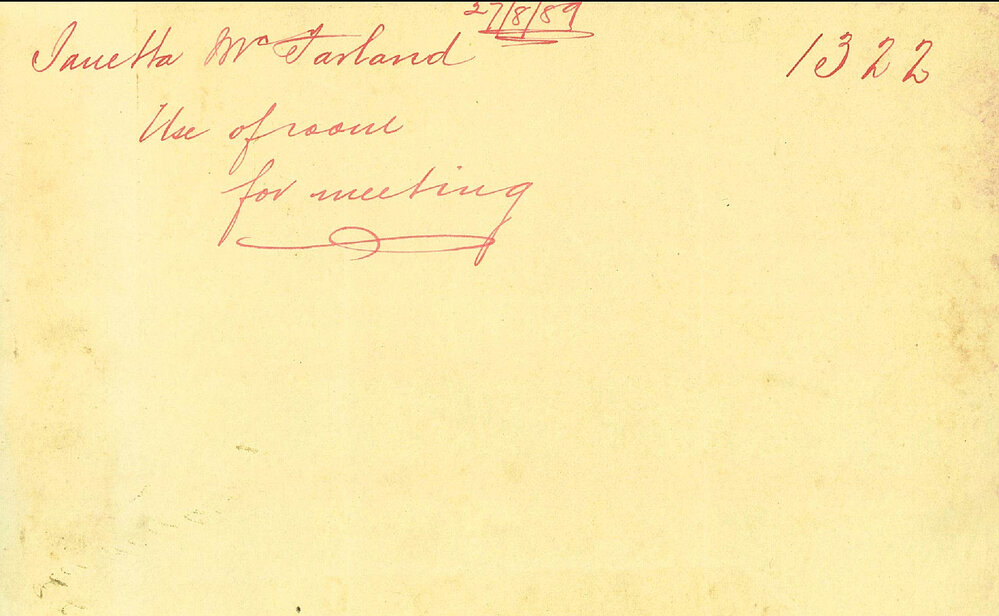 27/8/89
Janetta McFarland 1322
Use of room
for meeting